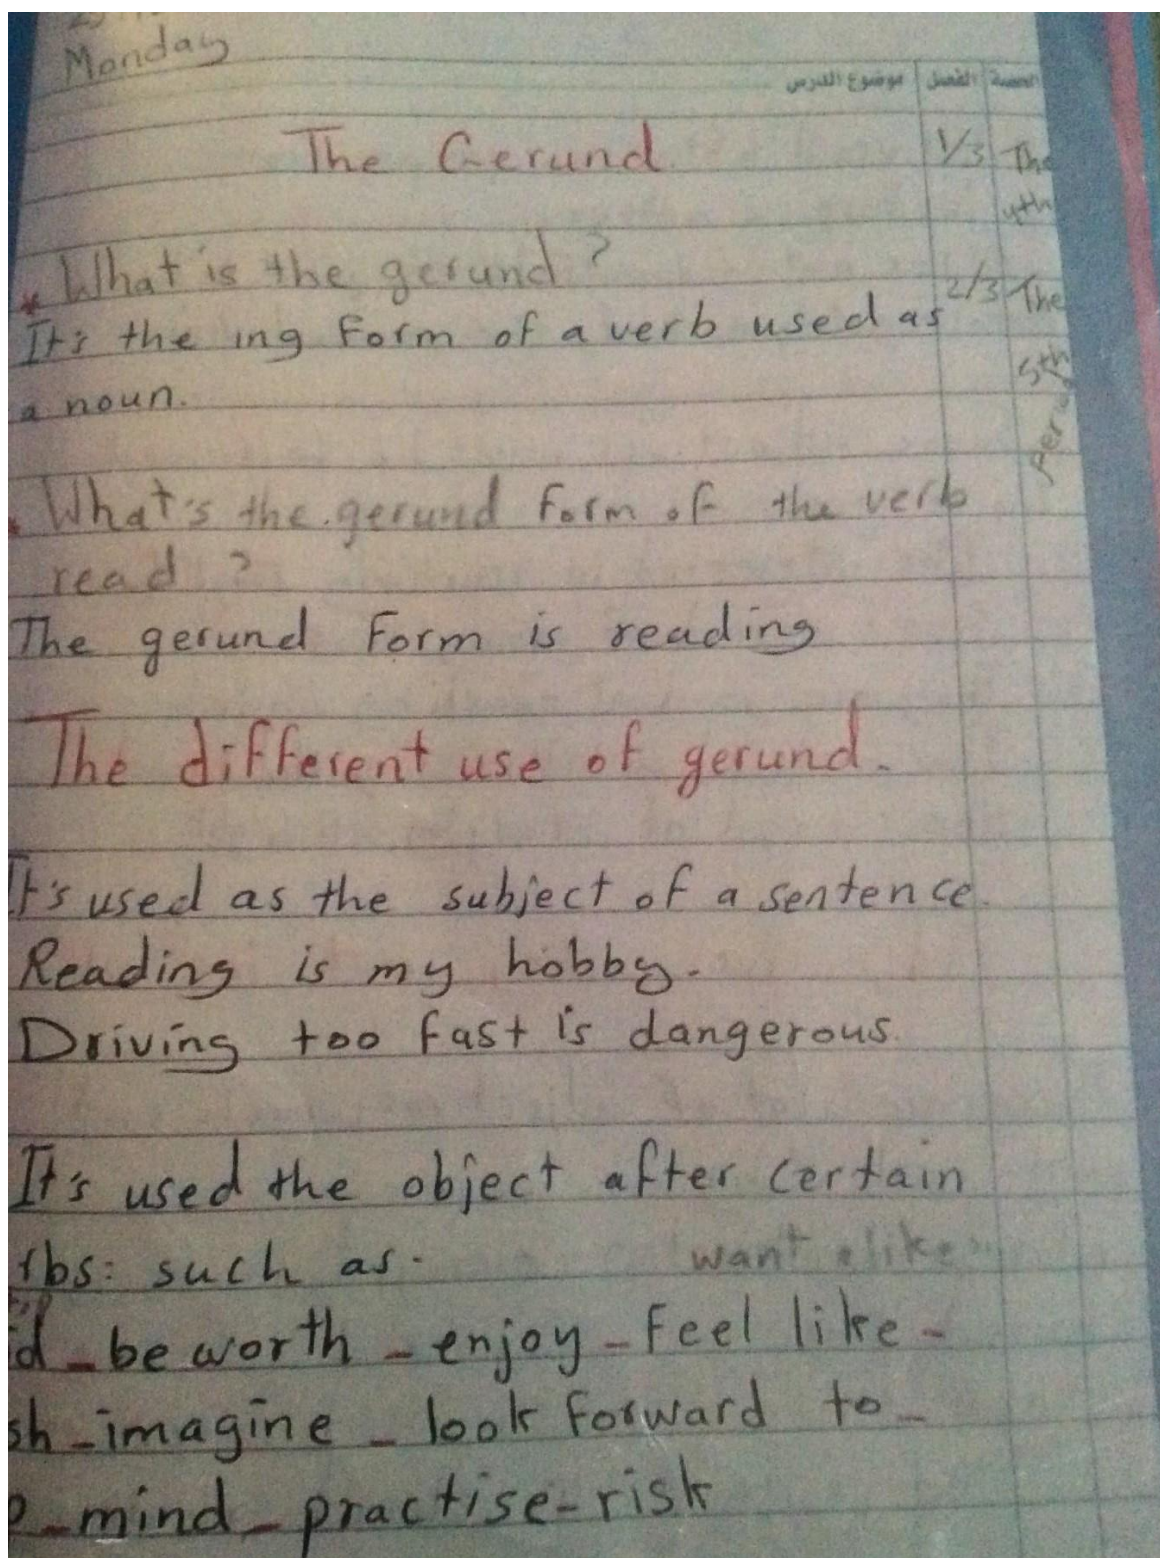 Monday
الحصة الفصل موضوع الدرس
The Gerund 1/3 The
4th
What is the gerund?
2/3 The
It's the ing Form of a verb used as
5th
a noun.
What's the gerund form of the verb
read ?
The gerund Form is reading
The different use of gerund.
It's used as the subject of a sentence.
Reading is my hobby.
Driving too fast is dangerous.
It's used the object after certain
rbs: such as. want like
d - be worth - enjoy - Feel like -
sh - imagine - look forward to -
- mind - practise - risk